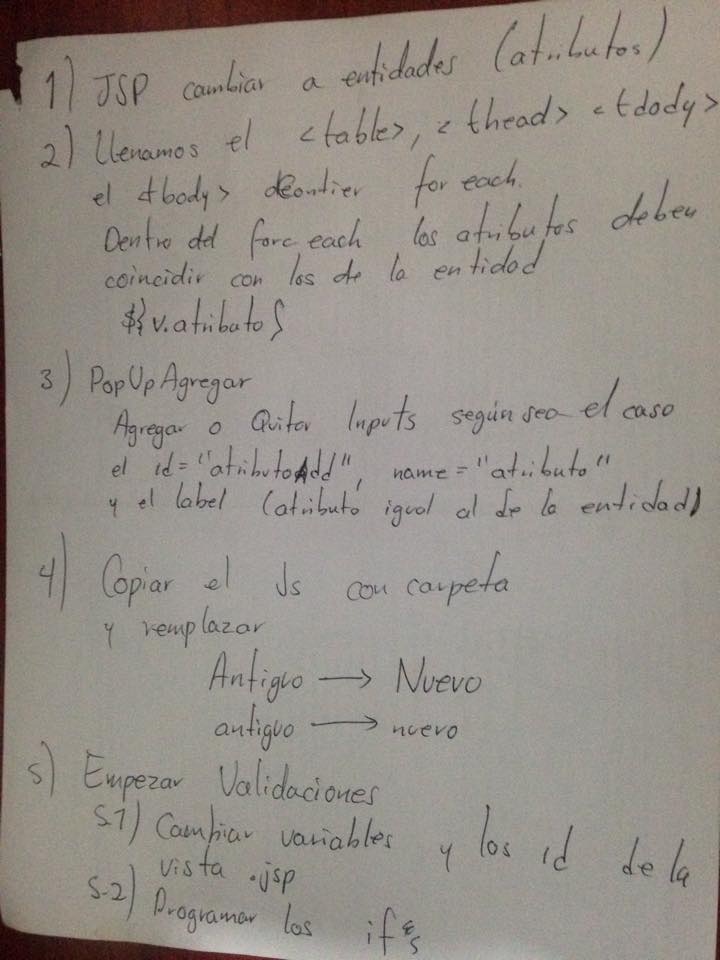 1) JSP cambiar a entidades (atributos)
2) Llenamos el <table>, <thead> <tdody>
el <tbody> deontier for each.
Dentro del forc each los atributos deben
coincidir con los de la entidad
${v.atributo}
3) PopUpAgregar
Agregar o Quitar Inputs según sea el caso
el id="atributoAdd", name="atributo"
y el label (atributo igual al de la entidad)
4) Copiar el Js con carpeta
y remplazar
Antiguo → Nuevo
antiguo → nuevo
5) Empezar Validaciones
5.1) Cambiar variables y los id de la
vista .jsp
5.2) Programar los if's